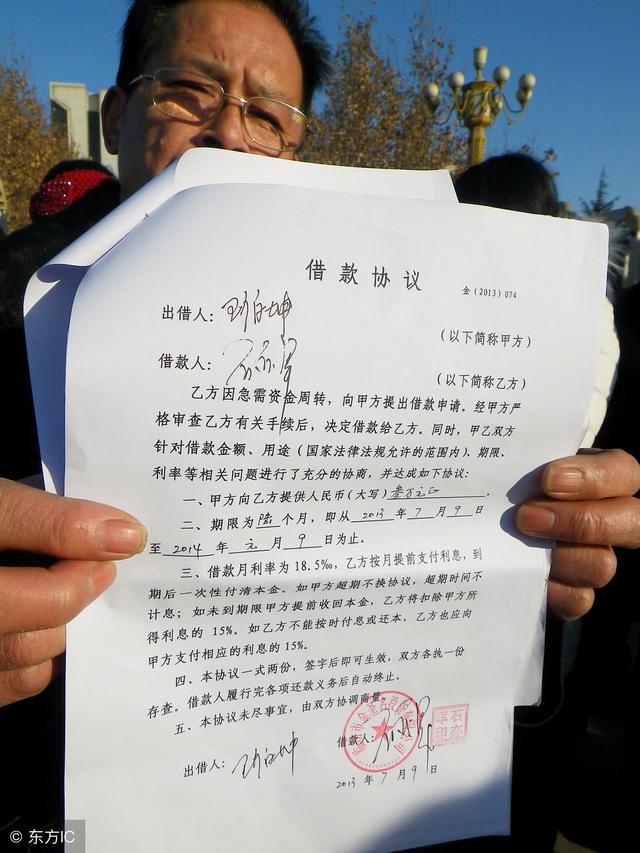 借款协议
金(2013)074
出借人：
(以下简称甲方)
借款人：
(以下简称乙方)
乙方因急需资金周转，向甲方提出借款申请。经甲方严
格审查乙方有关手续后，决定借款给乙方。同时，甲乙双方
针对借款金额、用途（国家法律法规允许的范围内）、期限、
利率等相关问题进行了充分的协商，并达成如下协议：
一、甲方向乙方提供人民币(大写)叁万元正。
二、期限为陆个月，即从2013年7月9日
至2014年元月9日为止。
三、借款月利率为18.5‰，乙方按月提前支付利息，到
期后一次性付清本金。如甲方超期不换协议，超期时间不
计息；如未到期限甲方提前收回本金，乙方将扣除甲方所
得利息的 15%。如乙方不能按时付息或还本，乙方也应向
甲方支付相应的利息的15%。
四、本协议一式两份，签字后即可生效，双方各执一份
存查。借款人履行完各项还款义务后自动终止。
五、本协议未尽事宜，由双方协调商量。
借款人：
出借人：
2013年7月9日
© 东方IC